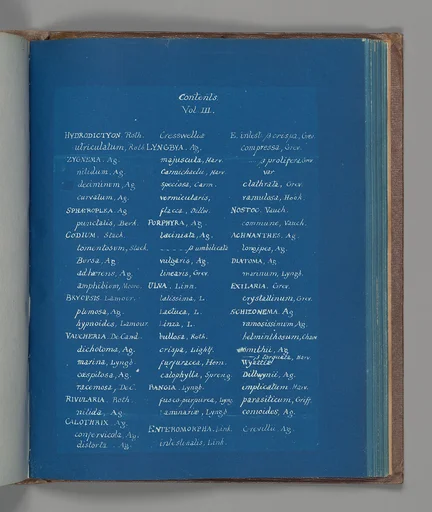 Contents.
Vol III.
HYDRODICTYON. Roth.
utriculatum, Roth.
ZYGNEMA. Ag.
nitidum, Ag.
deciminum, Ag.
curvatum, Ag.
SPHÆROPLEA. Ag.
punctalis, Berk.
CODIUM. Stack.
tomentosum, Stack.
Bursa, Ag.
adhærens, Ag.
amphibium, Moore.
BRYOPSIS. Lamour.
plumosa, Ag.
hypnoides, Lamour.
VAUCHERIA. De Cand.
dichotoma, Ag.
marina, Lyngb.
cæspitosa, Ag.
racemosa, DeC.
RIVULARIA. Roth.
nitida, Ag.
CALOTHRIX. Ag.
confervicola, Ag.
distorta. Ag.
Cresswellus
LYNGBYA. Ag.
majuscula, Harv.
Carmichaelii, Harv.
speciosa, Carm.
vermicularis,
flacca, Dillw.
PORPHYRA. Ag.
laciniata, Ag.
β umbilicata
vulgaris, Ag.
linearis, Grev.
ULVA. Linn.
latissima, L.
Lactuca, L.
Linza, L.
bullosa, Roth.
crispa, Lightf.
furfuracea, Horn.
calophylla, Spreng.
BANGIA. Lyngb.
fusco-purpurea, Lyng.
laminariæ, Lyngb.
ENTEROMORPHA. Link.
intestinalis, Link.
E. intest. β crispa, Grev.
compressa, Grev.
β prolifera, Grev.
var
clathrata, Grev.
ramulosa, Hook.
NOSTOC. Vauch.
commune, Vauch.
ACHNANTHES. Ag.
longipes, Ag.
DIATOMA. Ag.
marinum, Lyngb.
EXILARIA. Grev.
crystallinum, Grev.
SCHIZONEMA. Ag.
ramosissimum, Ag.
helminthosum, Chauv.
Smithii, Ag.
β torquata, Harv.
Wyattiæ
Dillwynii, Ag.
implicatum. Harv.
parasiticum, Griff.
comoides, Ag.
Grevillii. Ag.